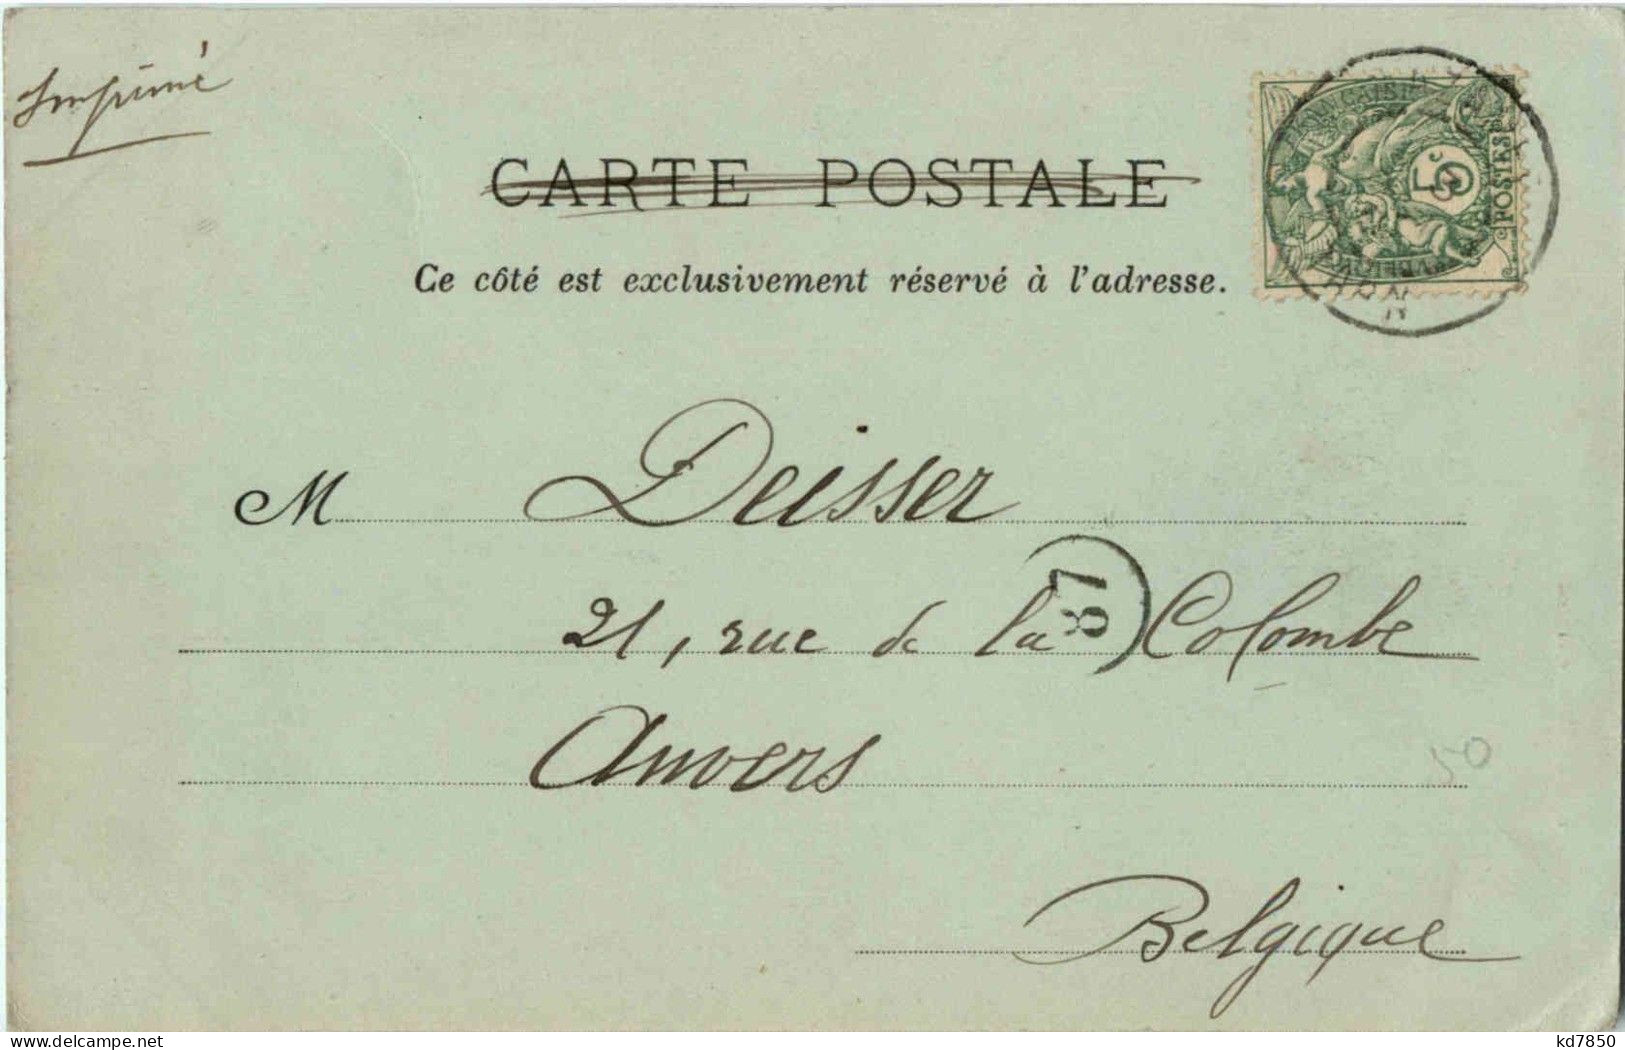 Imprimé
CARTE POSTALE
Ce côté est exclusivement réservé à l'adresse.
5c
POSTES
M Deisser
21, rue de la Colombe
87
Anvers
50
Belgique
delcampe.net
kd7850